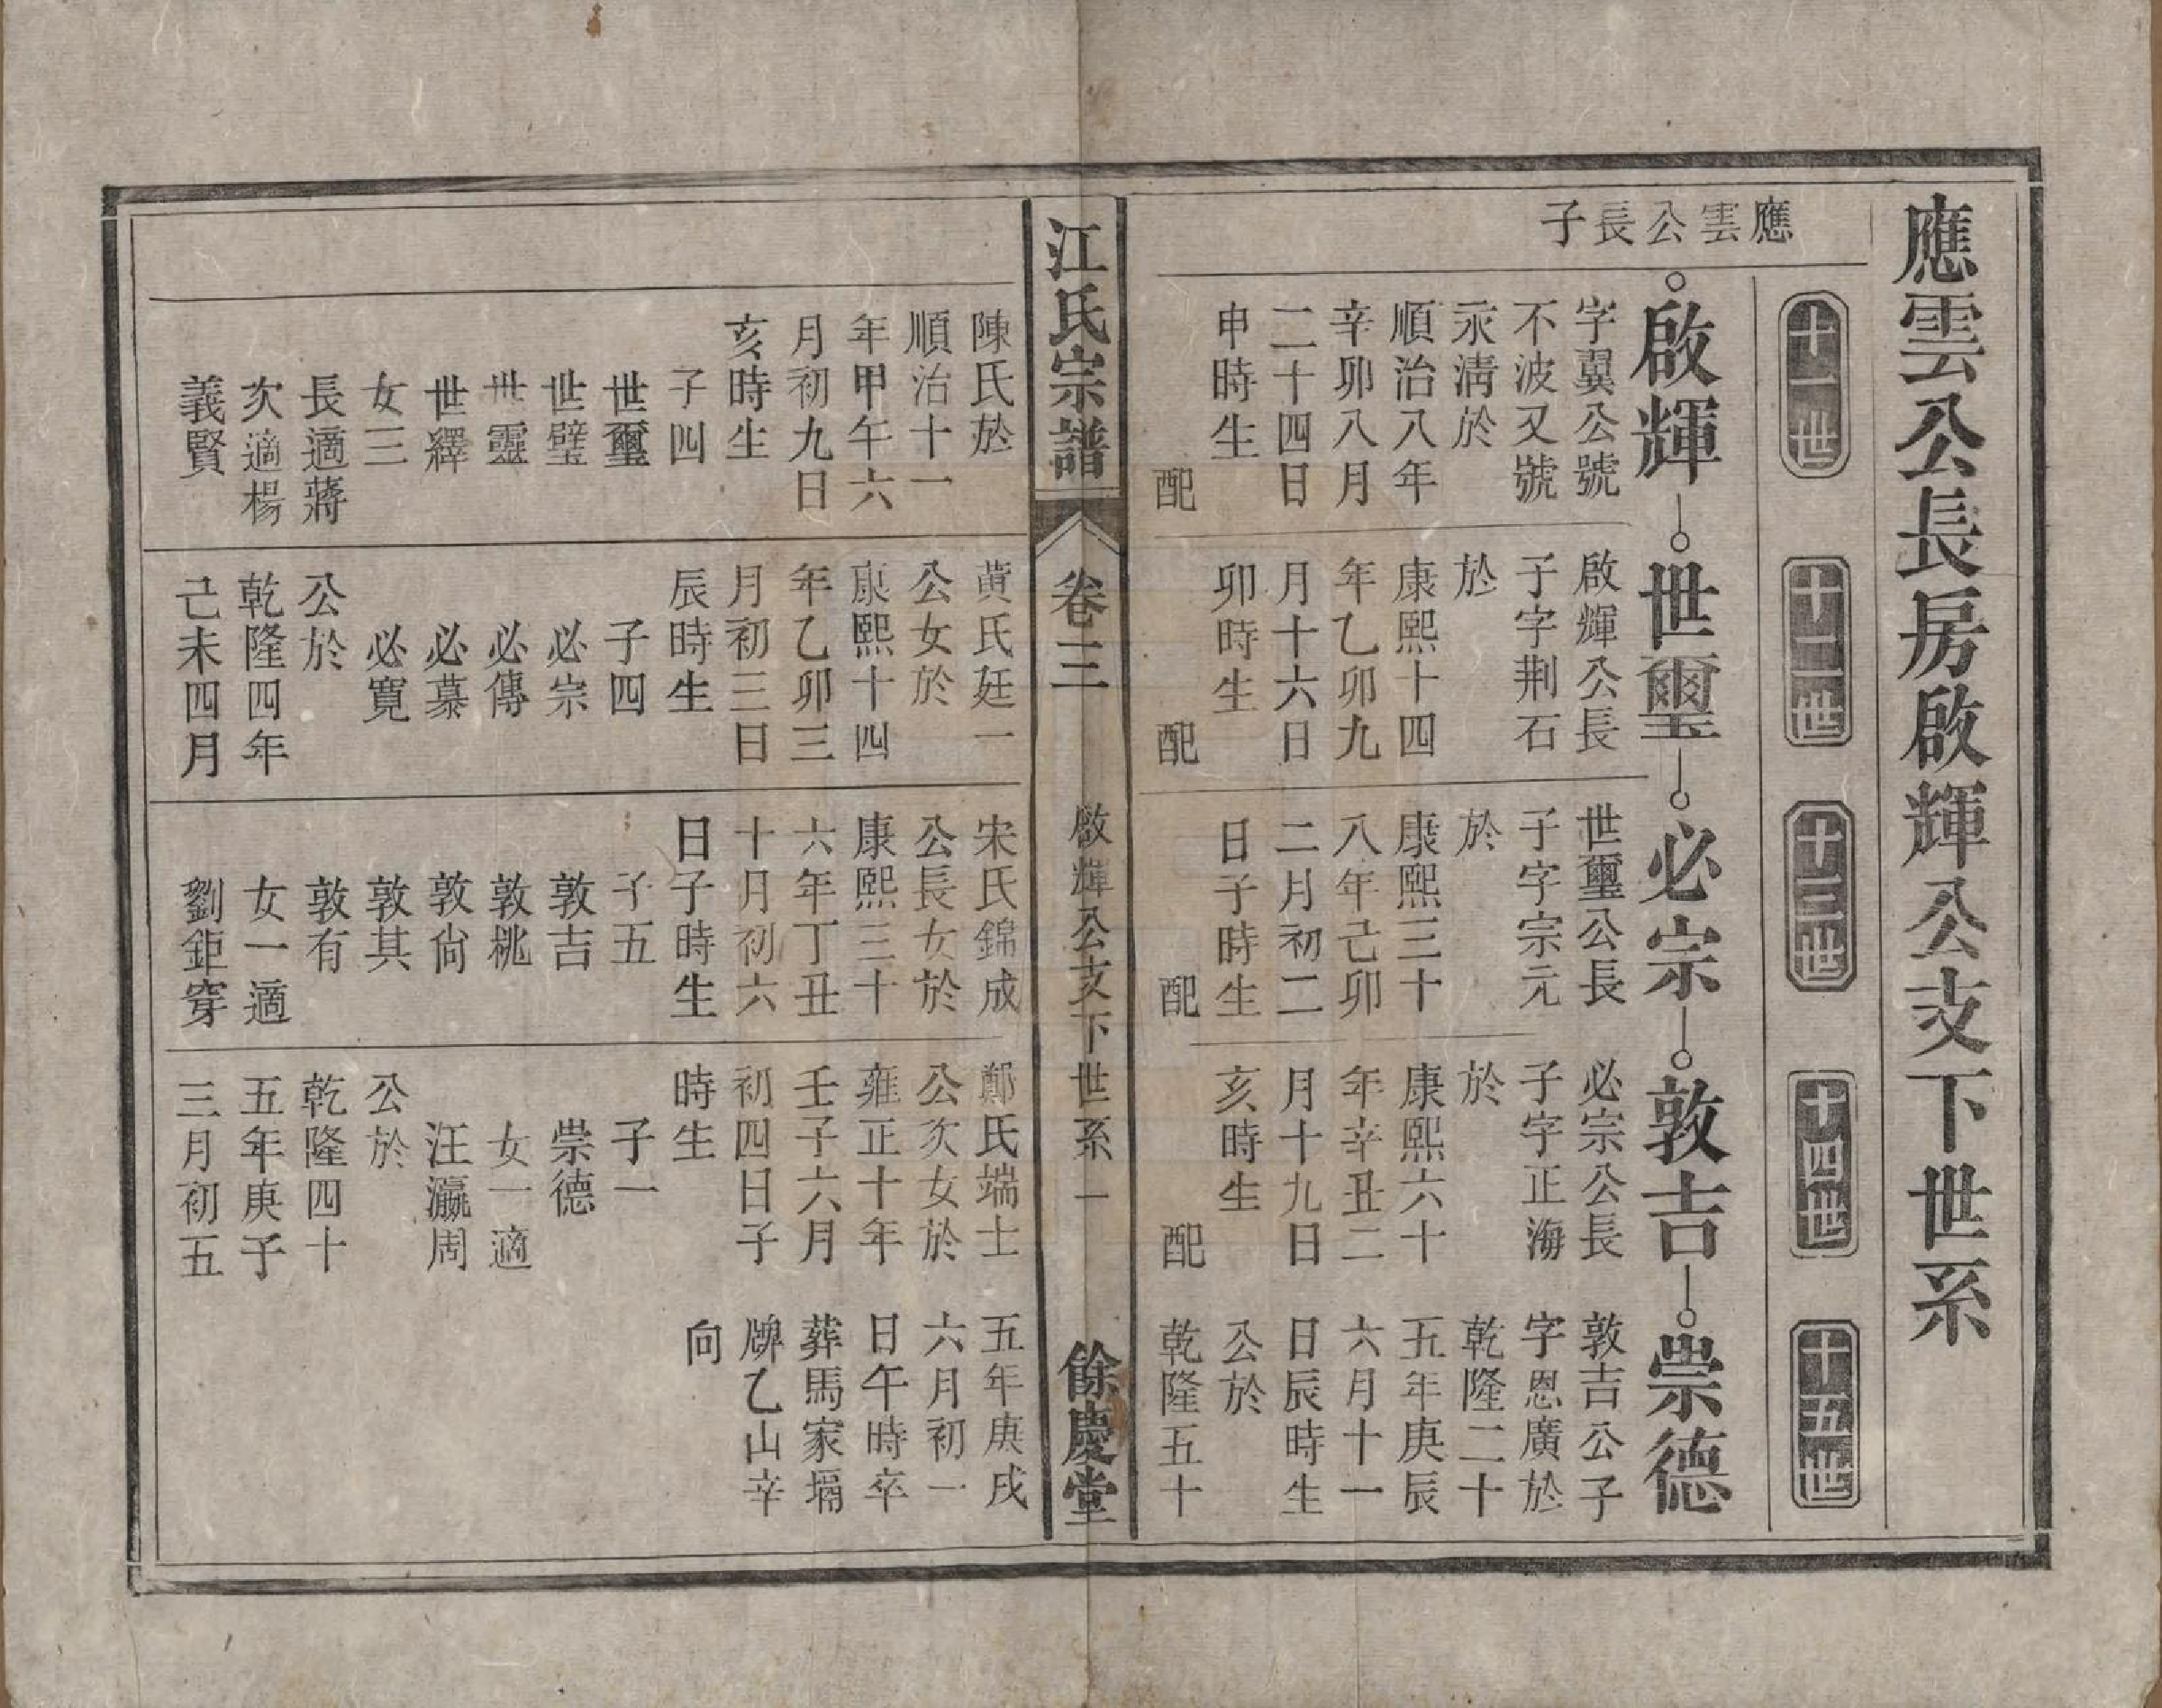 應雲公長房啟輝公支下世系
應雲公長子
十一世
十二世
十三世
十四世
十五世
啟輝
世璽
必宗
敦吉
崇德
字翼公號
不波又號
永清於
順治八年
辛卯八月
二十四日
申時生
配
啟輝公長
子字荆石
於
康熙十四
年乙卯九
月十六日
卯時生
配
世璽公長
子字宗元
於
康熙三十
八年己卯
二月初二
日子時生
配
必宗公長
子字正海
於
康熙六十
年辛丑二
月十九日
亥時生
配
敦吉公子
字恩廣於
乾隆二十
五年庚辰
六月十一
日辰時生
公於
乾隆五十
江氏宗譜
卷三
啟輝公支下世系一
餘慶堂
陳氏於
順治十一
年甲午六
月初九日
亥時生
子四
世璽
世璧
世靈
世繹
女三
長適蔣
次適楊
義賢
黃氏廷一
公女於
康熙十四
年乙卯三
月初三日
辰時生
子四
必宗
必傳
必慕
必寬
公於
乾隆四年
己未四月
宋氏錦成
公長女於
康熙三十
六年丁丑
十月初六
日子時生
子五
敦吉
敦桃
敦尙
敦其
敦有
女一適
劉鉅穿
鄭氏端士
公次女於
雍正十年
壬子六月
初四日子
時生
子一
崇德
女一適
汪瀛周
公於
乾隆四十
五年庚子
三月初五
五年庚戌
六月初一
日午時卒
葬馬家塥
牌乙山辛
向